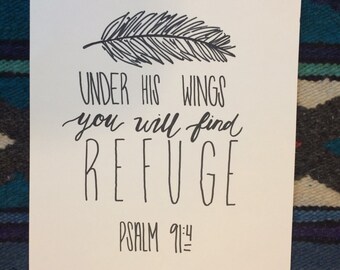 UNDER HIS WINGS
you will find
REFUGE
PSALM 91:4